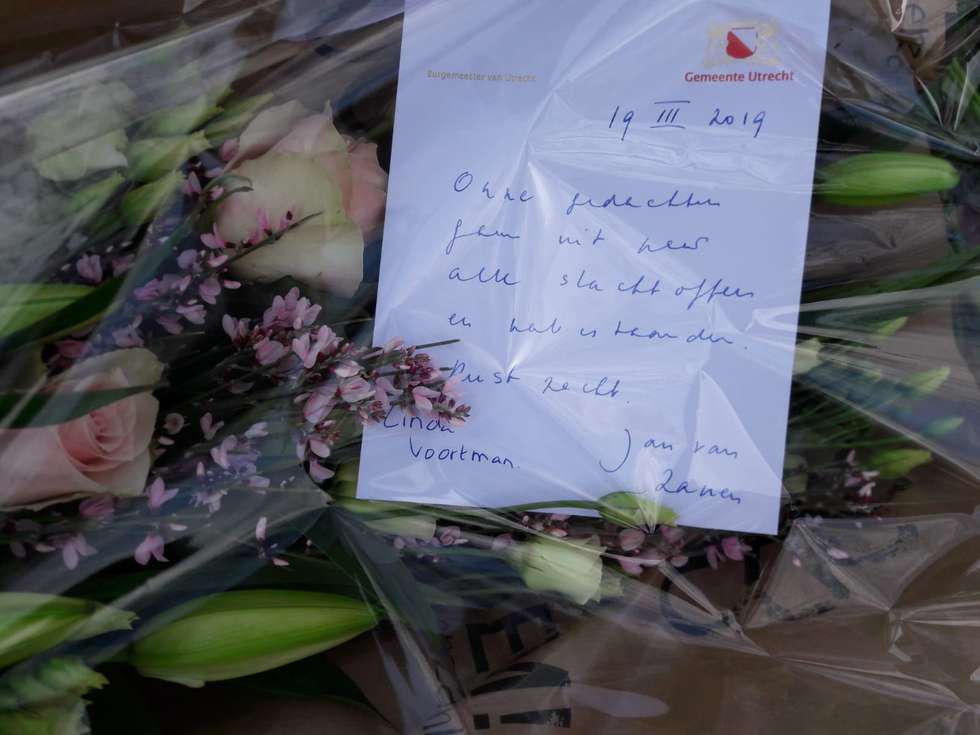 Burgemeester van Utrecht
Gemeente Utrecht
19 III 2019
Onze gedachten
gaan uit naar
alle slachtoffers
en nabestaanden.
Rust zacht.
Linda
Voortman.
Jan van
Zanen